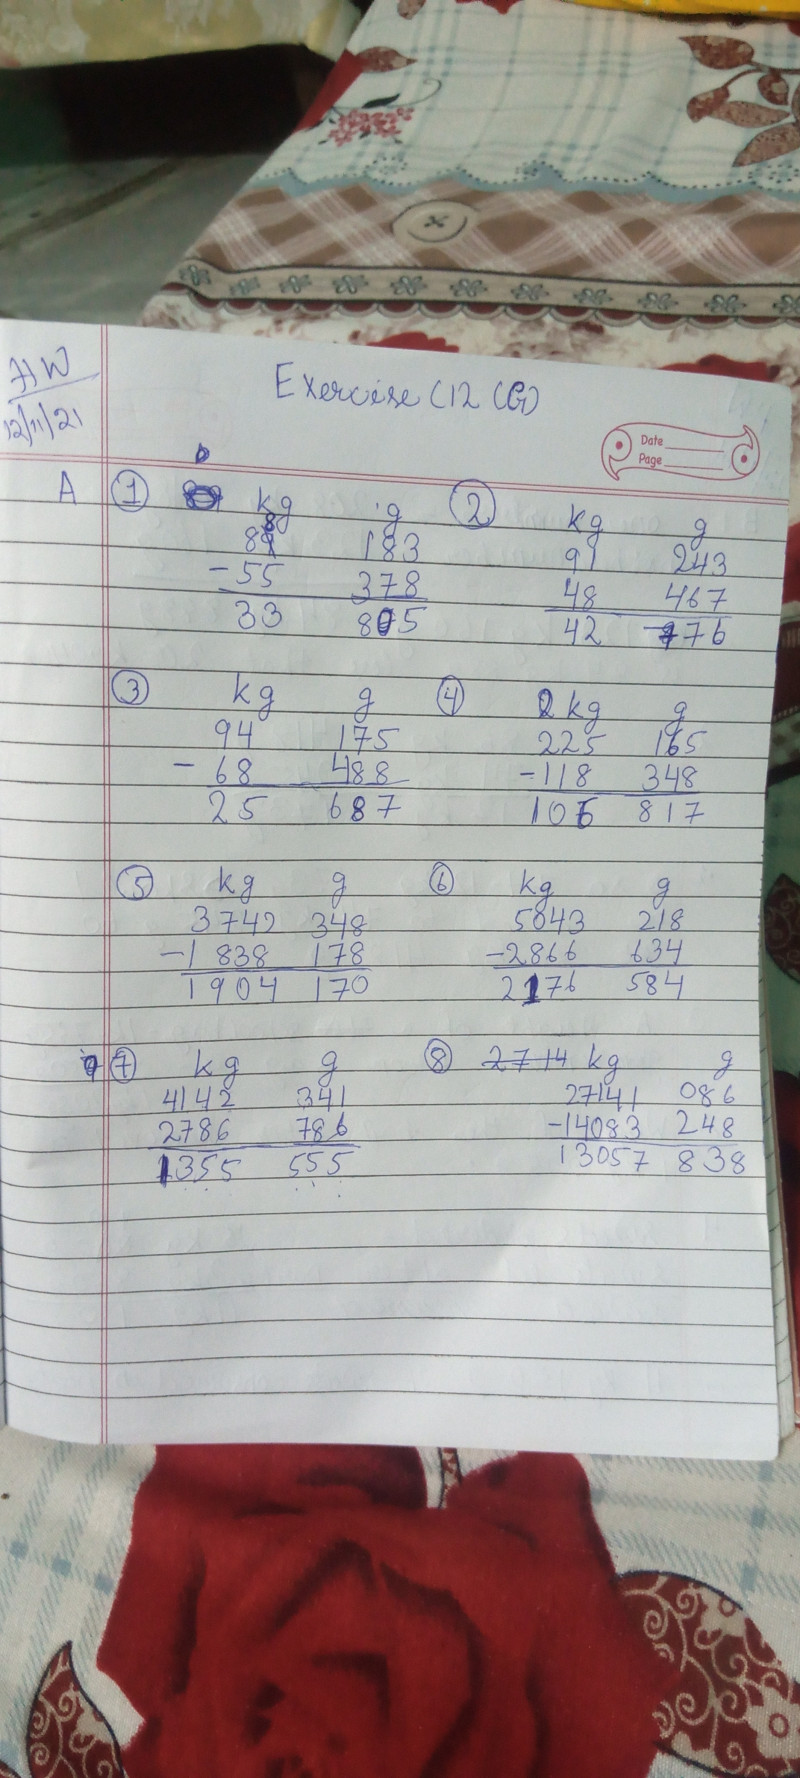 HW
12/11/21
Exercise (12 (G))
Date
Page
A ① kg g ② kg g
89 183 91 243
-55 378 48 467
33 805 42 776
③ kg g ④ kg g
94 175 225 165
- 68 488 -118 348
25 687 106 817
⑤ kg g ⑥ kg g
3742 348 5043 218
-1838 178 -2866 634
1904 170 2176 584
⑦ kg g ⑧ 2714 kg g
4142 341 27141 086
2786 786 -14083 248
1355 555 13057 838